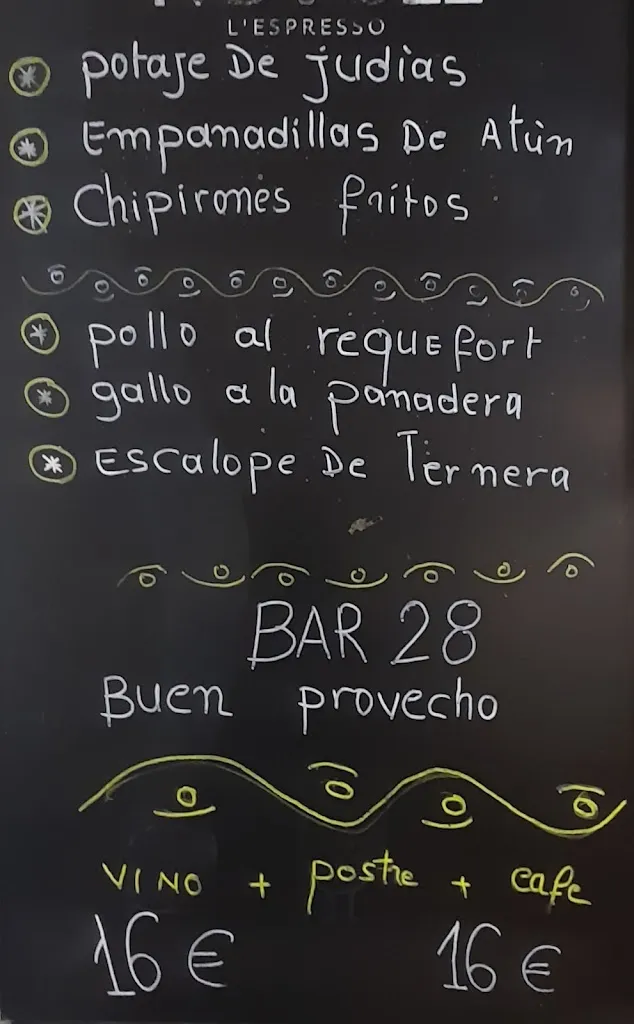 L'ESPRESSO
potaje De judias
Empanadillas De Atún
Chipirones fritos
pollo al requefort
gallo a la panadera
Escalope De Ternera
BAR 28
Buen provecho
VINO + postre + cafe
16 € 16 €